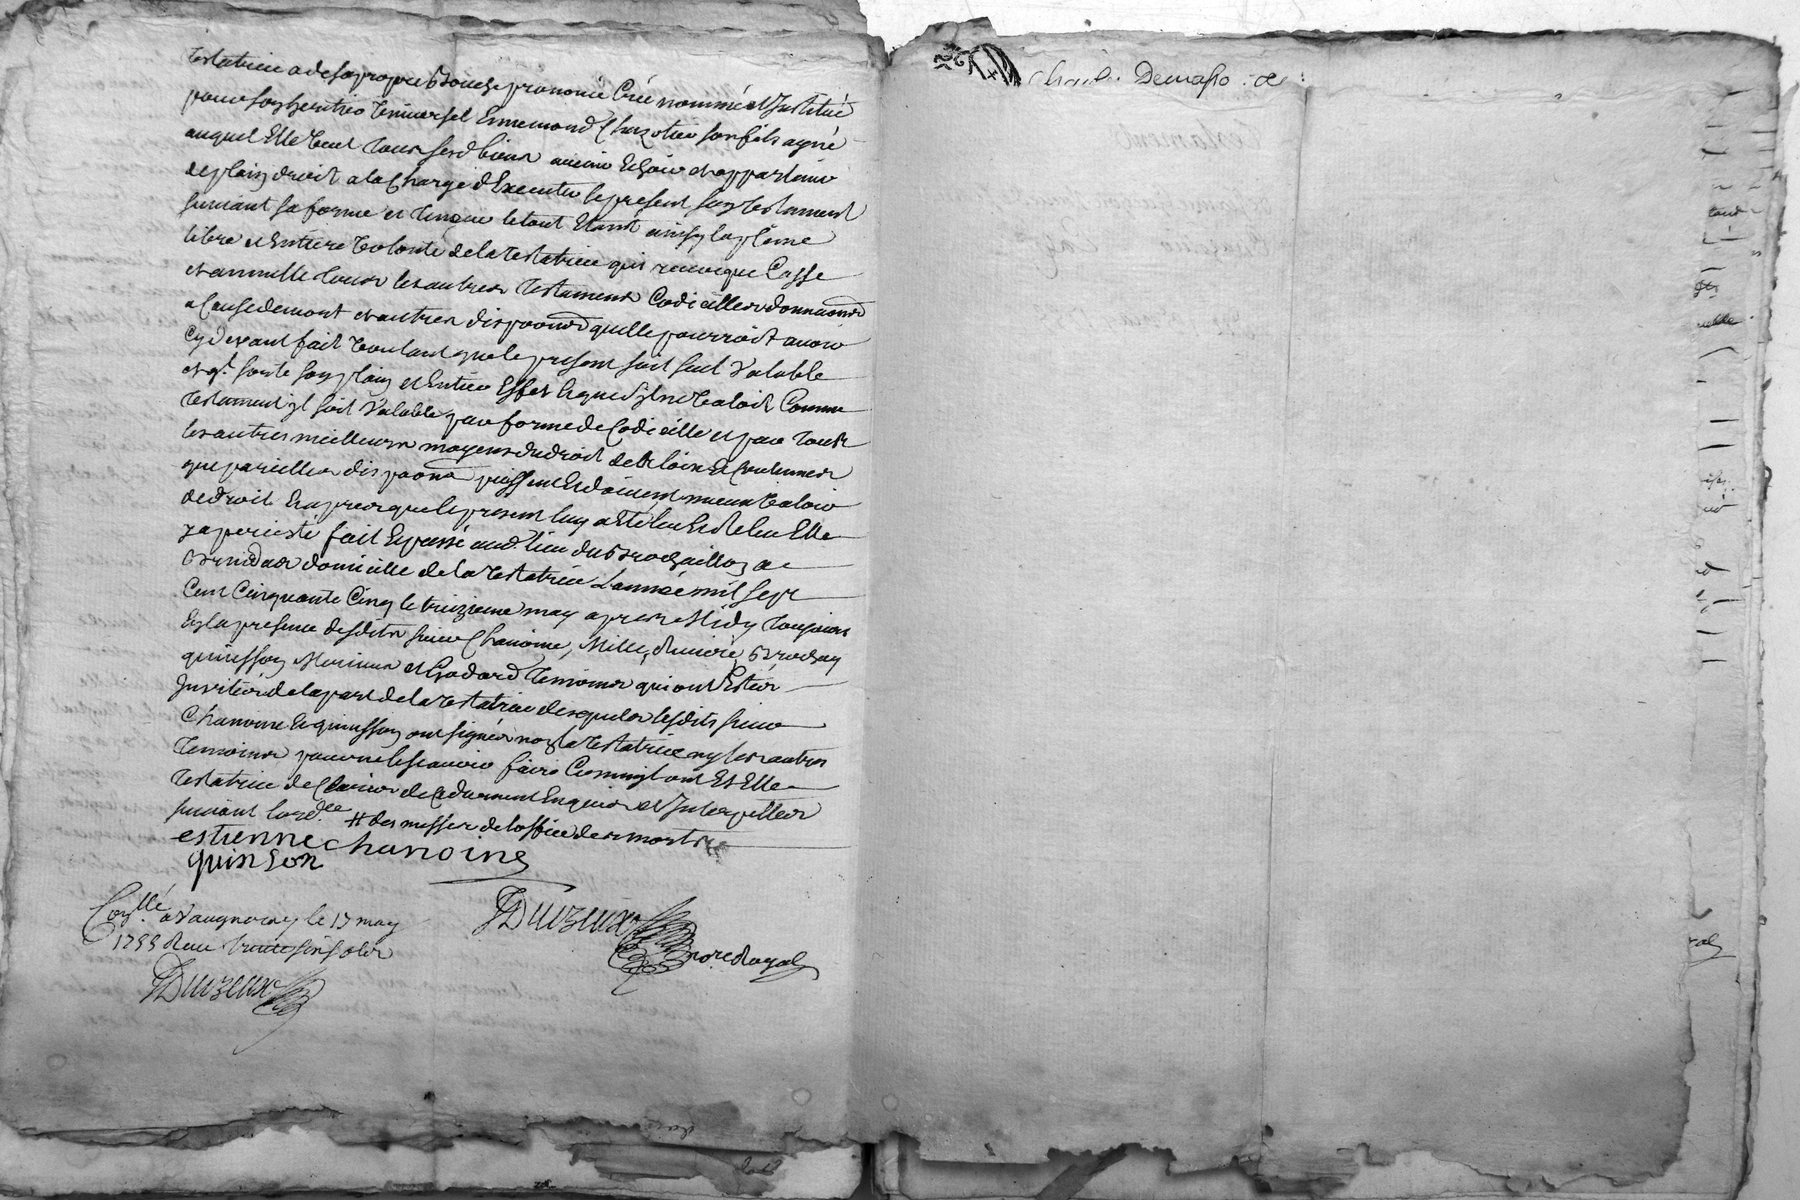 testatrice a de sa propre bouche prononcé Créé nommé et Institué
pour son heritier Universel Ennemond Chazotier son fils ayné
auquel Elle veut tous ses d. biens avenir Echoir et appartenir
de plain droit a la Charge d'Executer le present son testament
suivant sa forme et teneur le tout Etant ainsy la pleine
libre et Entiere volonté de la testatrice qui revoque Casse
et annulle tous les autres testamens Codicilles donnaons
a Cause de mort et autres dispoons quelle pourroit avoir
Cy devant fait voulant que le present soit seul valable
et qt. sorte son plain et Entier Effet Et que s'il ne valoit Comme
testament yl soit valable par forme de Codicille et par tous
les autres meilleurs moyens du droit des loix Et Coutumes
que pareilles dispoons puissent Et doivent mieux valoir
de droit Et apres que le present luy a Eté leu Et releu Elle
y a persisté fait Et passé aud. lieu du Brochaillon
domicille de la testatrice L'année mil sept
Cent Cinquante Cinq le treizieme may apres Midy toujours
En la presence desdits sieur Chanoine, Mille, Brochay
quinsson et Godard temoins qui ont Estés
Invités de la part de la testatrice desquels lesdits sieur
Chanoine Et quinsson ont signés non la testatrice ny les autres
temoins pour ne le scavoir faire Comm'ils ont Et Elle
testatrice declarés de ce duement Enquis et Interpellés
suivant lordce # des messes de loffice des morts
estienne chanoine
quinson
Conllé a Vaugneray le 13 may
1755 Reçu sols
Duvzeux
Duvzeux
nore Royal
Demasso